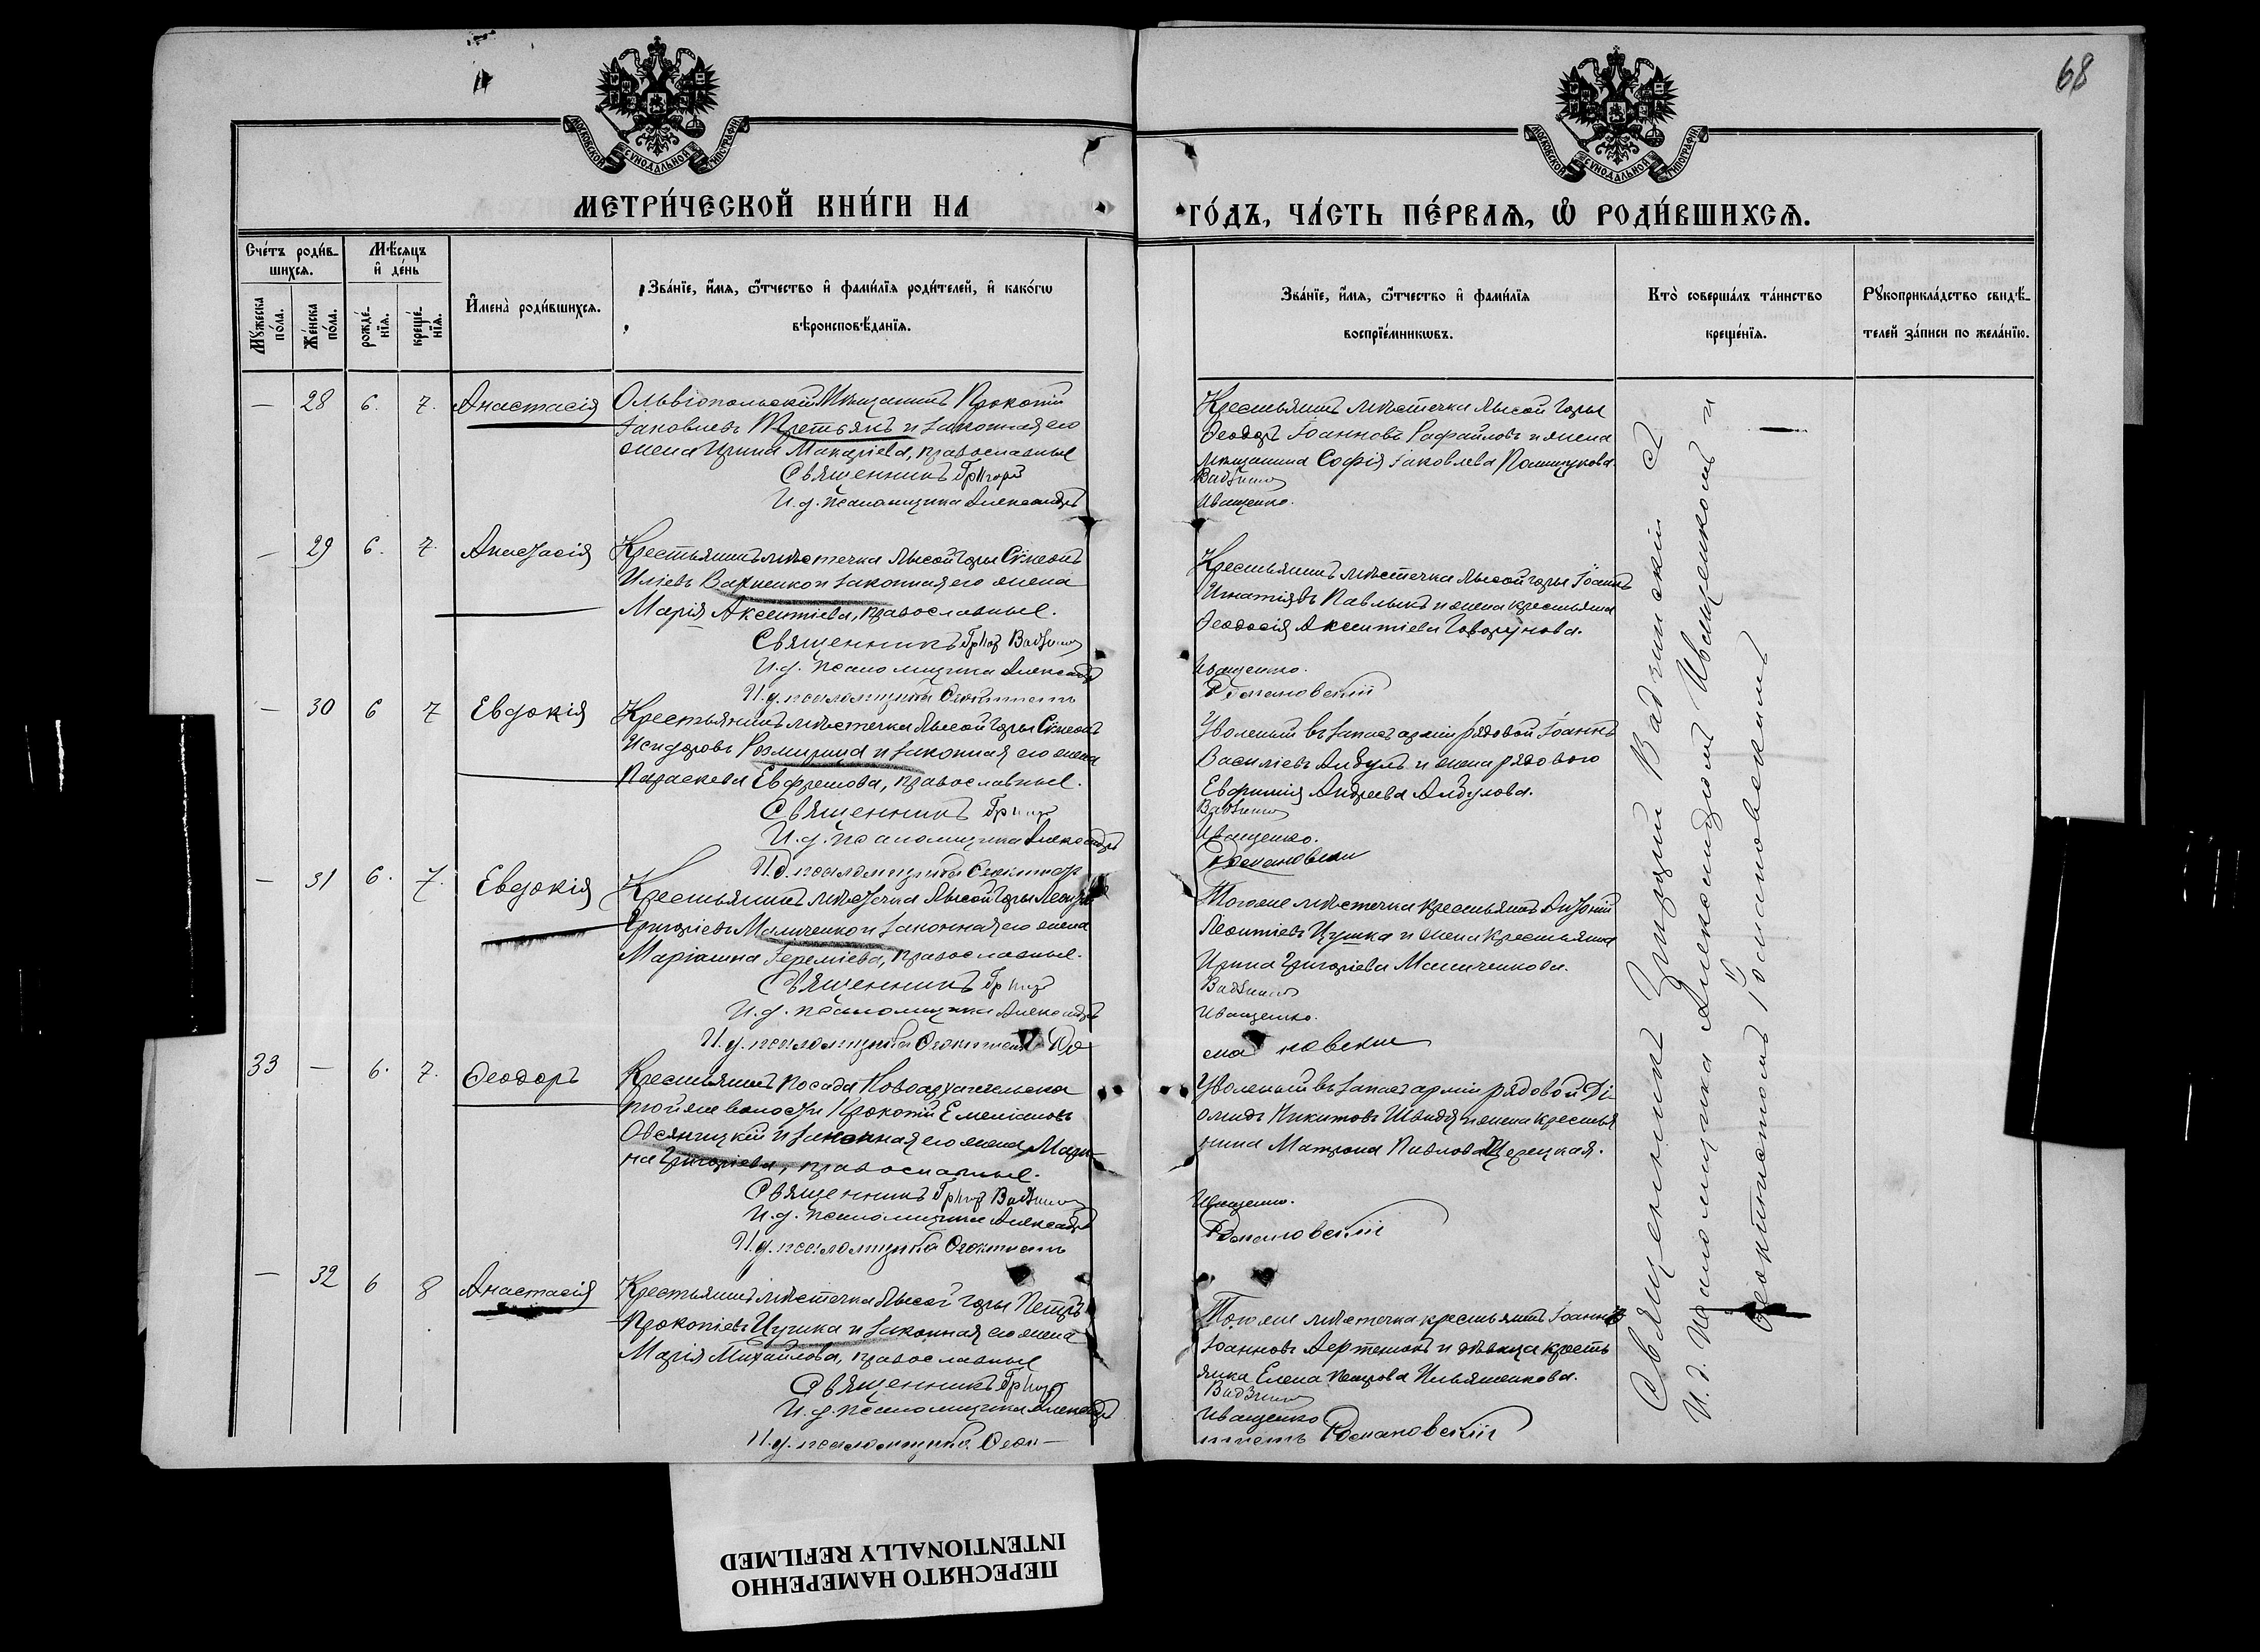 68
МОСКОВСКОЙ СѴНОДАЛЬНОЙ ТИПОГРАФІИ
МОСКОВСКОЙ СѴНОДАЛЬНОЙ ТИПОГРАФІИ
МЕТРИ́ЧЕСКОЙ КНИ́ГИ НА
ГО́ДЪ, ЧА́СТЬ ПЕ́РВАѦ, Ѡ҆ РОДИ́ВШИХСѦ.
Сче́тъ роди́в-
шихсѧ.
Мꙋ́жеска
по́ла.
Же́нска
по́ла.
Мѣ́сѧцъ
и҆ де́нь
рожде́-
нїѧ.
креще́-
нїѧ.
И҆мена̀ роди́вшихсѧ.
Зва́нїе, и҆́мѧ, ѻ҆́тчество и҆ фами́лїѧ роди́телей, и҆ како́гѡ
вѣроисповѣ́данїѧ.
Зва́нїе, и҆́мѧ, ѻ҆́тчество и҆ фами́лїѧ
воспрїе́мникѡвъ.
Кто̀ соверша́лъ та́инство
креще́нїѧ.
Рꙋкоприкла́дство свидѣ́-
телей за́писи по жела́нїю.
— 28 6. 7. Анастасія
Ольвіопольскій Мѣщанинъ Прокопій
Іаковлевъ Третьякъ и законная его
жена Ирина Макаріева, православные
Священникъ Григорій
И. д. псаломщика Александръ
Крестьянинъ мѣстечка Лысой Горы
Ѳеодоръ Іоанновъ Рафаиловъ и жена
мѣщанина Софія Іаковлева
Вадзинскій
Иващенко.
— 29 6. 7. Анастасія
Крестьянинъ мѣстечка Лысой Горы Сѵмеонъ
Иліевъ Вахненко и законная его жена
Марія Аксентіева, православные.
Священникъ Григ Вадзинск
И. д. псаломщика Александръ
И. д. псаломщика Ѳеоктистъ
Крестьянинъ мѣстечка Лысой горы Іоаннъ
Игнатіевъ Павлыкъ и жена крестьянина
Ѳеодосія Аксентіева Говорунова.
Иващенко.
Романовскій
— 30 6 7 Евдокія
Крестьянинъ мѣстечка Лысой Горы Сѵмеонъ
Исидоровъ Розмирица и законная его жена
Параскева Ефремова, православные.
Священникъ Григор
И. д. псаломщика Александръ
И. д. псаломщика Ѳеоктистъ
Уволеный въ запасъ арміи рядовой Іоаннъ
Василіевъ Албулъ и жена рядового
Евфимія Андреева Албулова.
Вадзинск
Иващенко.
Романовскій
— 31 6. 7. Евдокія
Крестьянинъ мѣстечка Лысой Горы Леонтій
Григоріевъ Маличенко и законная его жена
Маріанна Іереміева, православные.
Священникъ Григ
И. д. псаломщика Александръ
И. д. псаломщика Ѳеоктистъ Ро
Тогоже мѣстечка крестьянинъ Антоній
Леонтіевъ Цушка и жена крестьянина
Ирина Григоріева Маличенкова.
Вадзинск
Иващенко.
мановскій
33 — 6. 7. Ѳеодоръ
Крестьянинъ посада Новоархангельска
тойже волости Прокопій Емеліановъ
Овсяницкій и законная его жена Мари-
на Григоріева, православные.
Священникъ Григ Вадзинск
И. д. псаломщика Александръ
И. д. псаломщика Ѳеоктистъ
Уволеный въ запасъ арміи рядовой Ді-
омидъ Никитовъ Швидя и жена крестья
нина Матрона Павлова Щерецкая.
Иващенко.
Романовскій
— 32 6 8 Анастасія
Крестьянинъ мѣстечка Лысой горы Петръ
Прокопіевъ Цушка и законная его жена
Марія Михайлова, православные
Священникъ Григор
И. д. псаломщика Александръ
И. д. псаломщика Ѳеок-
Тогоже мѣстечка крестьянинъ Іоаннъ
Іоанновъ и дѣвица кресть
янка Елена Петрова Ильяшенкова.
Вадзинск
Иващенко
тистъ Романовскій
Священникъ Григорій Вадзинскій С
И. д. Псаломщика Александромъ Иващенкомъ и
Ѳеоктистомъ Романовскимъ
ПЕРЕСНЯТО НАМЕРЕННО
INTENTIONALLY REFILMED